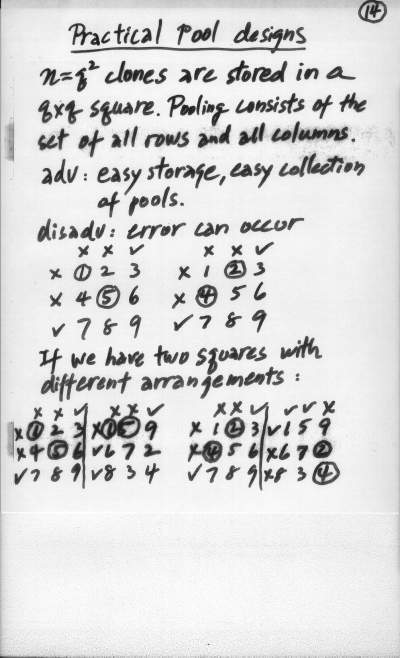 14
Practical Pool designs
n=q² clones are stored in a
q×q square. Pooling consists of the
set of all rows and all columns.
adv: easy storage, easy collection
of pools.
disadv: error can occur
× × ✓ × × ✓
× ① 2 3 × 1 ② 3
× 4 ⑤ 6 × ④ 5 6
✓ 7 8 9 ✓ 7 8 9
If we have two squares with
different arrangements:
× × ✓ | × × ✓ × × ✓ | ✓ ✓ ×
× ① 2 3 | × ① ⑤ 9 × 1 ② 3 | ✓ 1 5 9
× 4 ⑤ 6 | ✓ 6 7 2 × ④ 5 6 | × 6 7 ②
✓ 7 8 9 | ✓ 8 3 4 ✓ 7 8 9 | × 8 3 ④